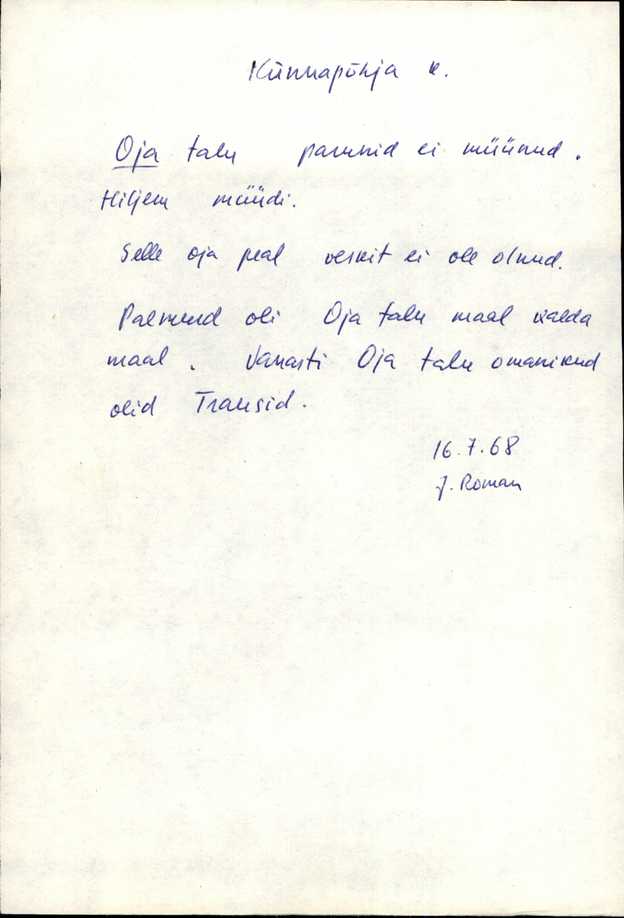 Künnapõhja k.
Oja talu parunid ei müünud.
Hiljem müüdi.
Selle oja peal veskit ei ole olnud.
oli Oja talu maal valda
maal. Vanasti Oja talu omanikud
olid Transid.
16.7.68
J. Roman